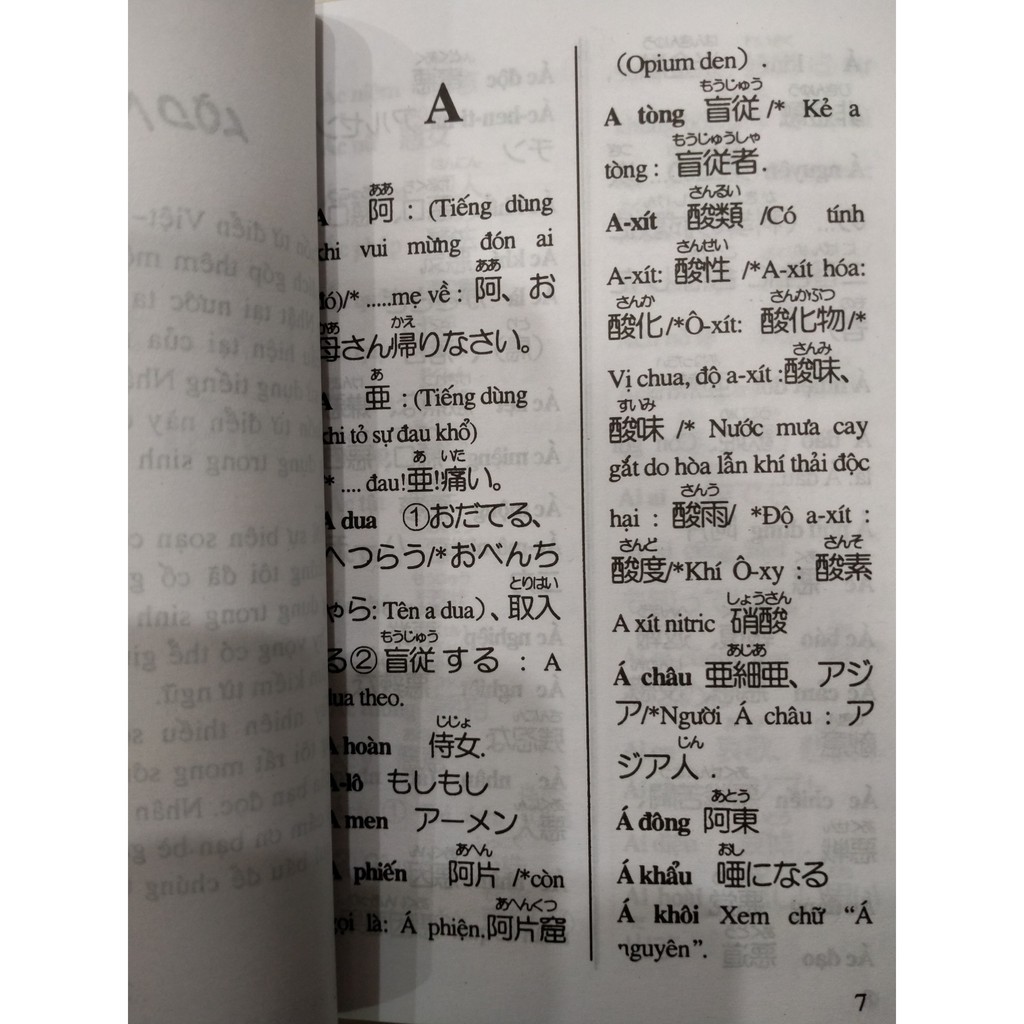 A
ああ
阿 : (Tiếng dùng
khi vui mừng đón ai
ああ
đó)/* .....mẹ về : 阿、お
かあ かえ
母さん帰りなさい。
あ
亜 : (Tiếng dùng
khi tỏ sự đau khổ)
あ いた
* .... đau!亜!痛い。
A dua ①おだてる、
へつらう/*おべんち
とりはい
ゃら: Tên a dua)、取入
もうじゅう
る②盲従する : A
dua theo.
じじょ
A hoàn 侍女.
A-lô もしもし
A men アーメン
あへん
A phiến 阿片 /*còn
あへんくつ
gọi là: Á phiện.阿片窟
(Opium den) .
もうじゅう
A tòng 盲従/* Kẻ a
もうじゅうしゃ
tòng : 盲従者.
さんるい
A-xít 酸類 /Có tính
さんせい
A-xít: 酸性 /*A-xít hóa:
さんか さんかぶつ
酸化/*Ô-xít: 酸化物/*
さんみ
Vị chua, độ a-xít :酸味、
すいみ
酸味 /* Nước mưa cay
gắt do hòa lẫn khí thải độc
さんう
hại : 酸雨/ *Độ a-xít :
さんど さんそ
酸度/*Khí Ô-xy : 酸素
しょうさん
A xít nitric 硝酸
あじあ
Á châu 亜細亜、アジ
ア/*Người Á châu : ア
じん
ジア人 .
あとう
Á đông 阿東
おし
Á khẩu 唖になる
Á khôi Xem chữ “Á
nguyên”.
7